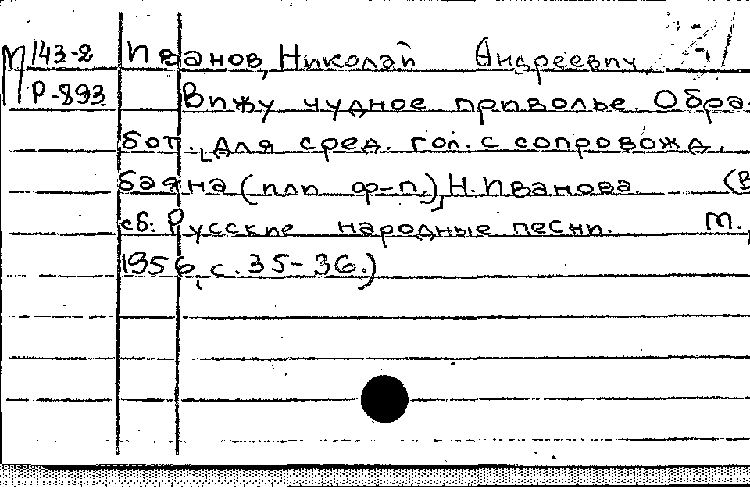 М 143-2 Иванов, Николай Андреевич
Р-893 Вижу чудное приволье. Обра-
бот. для сред. гол. с сопровожд.
баяна (или ф-п.) Н. Иванова. (В
сб: Русские народные песни. М.,
1956, с. 35-36.)